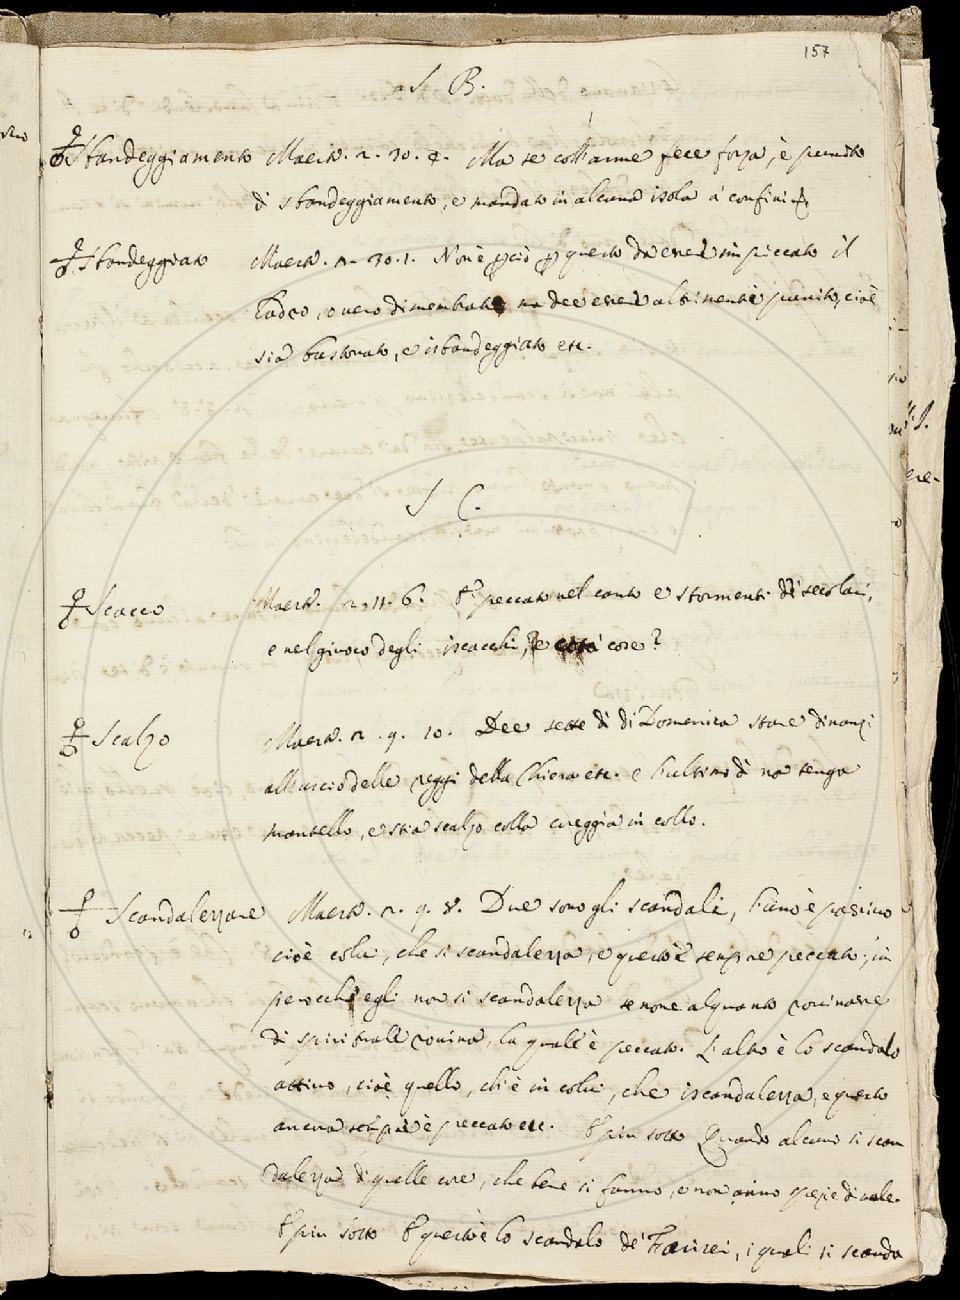 157
S B.
Sbandeggiamento Maestr. 2. 30. 4. Ma se coll'arme fece forza, è punito
di sbandeggiamento, e mandato in alcuna isola a' confini
Sbandeggiato Maestr. 2. 30. 1. Non è però per questo da essere impiccato il
Ladro, overo dimembrato, ma dee essere altrimenti punito, cioè
sia bastonato, e isbandeggiato etc.
S C.
Scacco Maestr. 2. 11. 6. È peccato nel canto e stormenti di secolari,
e nel giuoco degli iscacchi, e cose?
Scalzo Maestr. 2. 9. 10. Dee sette dì di Domenica stare dinanzi
all'uscio delle reggi della Chiesa etc. e l'ultimo dì non tenga
mantello, e stia scalzo colla coreggia in collo.
Scandalezzare Maestr. 2. 9. 8. Due sono gli scandali, l'uno è passivo
cioè colui, che si scandalezza, e questo è sempre peccato; in
perocchè egli non si scandalezza se none alquanto rovinare
di spirituale rovina, la quale è peccato. L'altro è lo scandalo
attivo, cioè quello, ch'è in colui, che iscandalezza, e questo
ancora sempre è peccato etc. E più sotto Quando alcuno si scan
dalezza di quelle cose, che bene si fanno, e non ànno spezie di male.
E più sotto E questo è lo scandalo de' Farisei, i quali si scanda